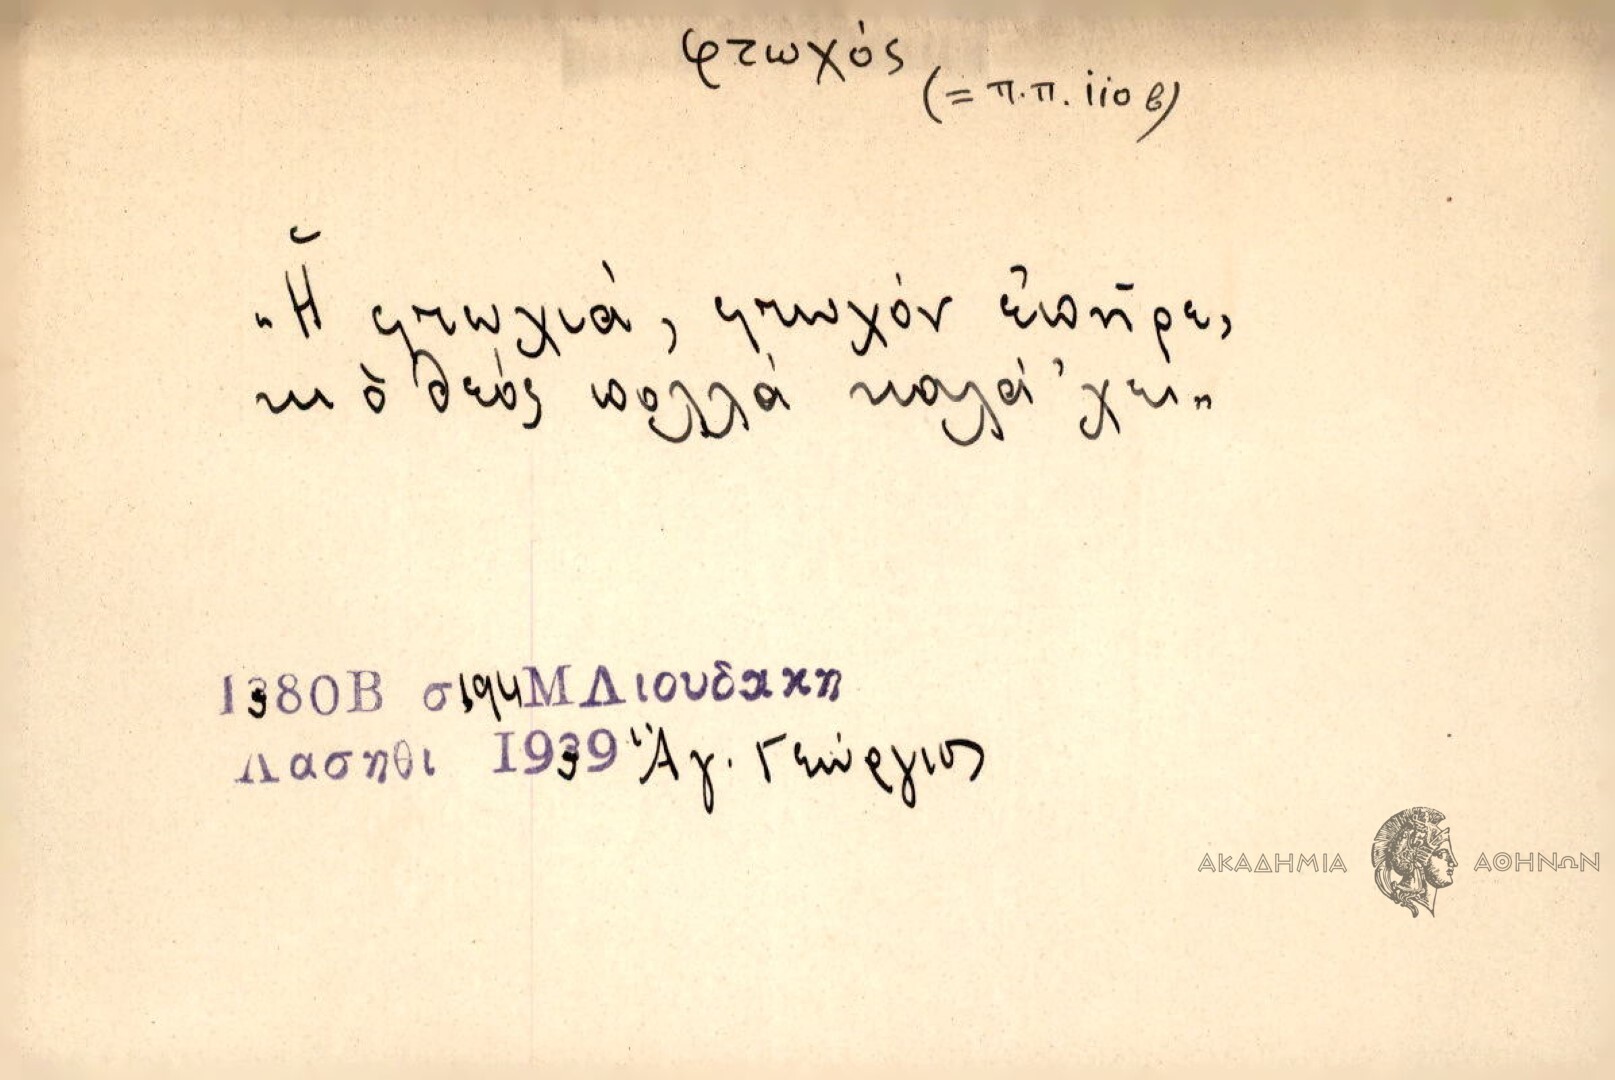 φτωχός
(= π.π. iio β)
„Ἡ φτωχιά, φτωχόν ἐπῆρε,
κι ὁ θεός πολλά καλά 'χει"
1380Β σ194 Μ Λιουδακη
Λασηθι 1939 Ἅγ. Γεώργιος
ΑΚΑΔΗΜΙΑ ΑΘΗΝΩΝ